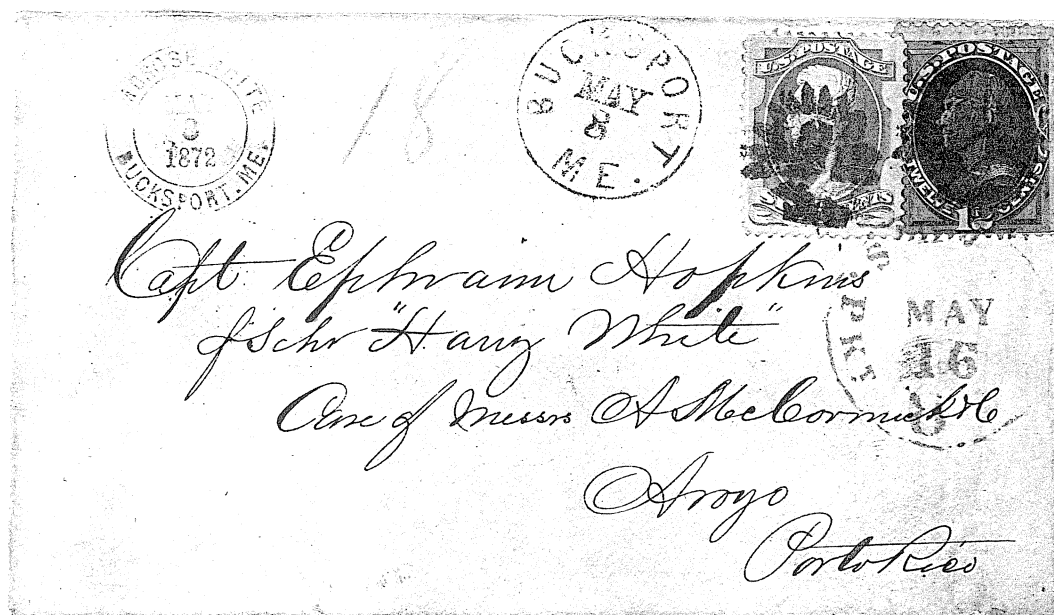 1872
BUCKSPORT, ME.
18
BUCKSPORT
MAY
8
ME.
U.S. POSTAGE
CENTS
U.S. POSTAGE
TWELVE CENTS
12
Capt Ephraim Hopkins
of Schr "Harry White"
Care of Messrs A McCormick & Co
Arroyo
Porto Rico
PKT
MAY
16